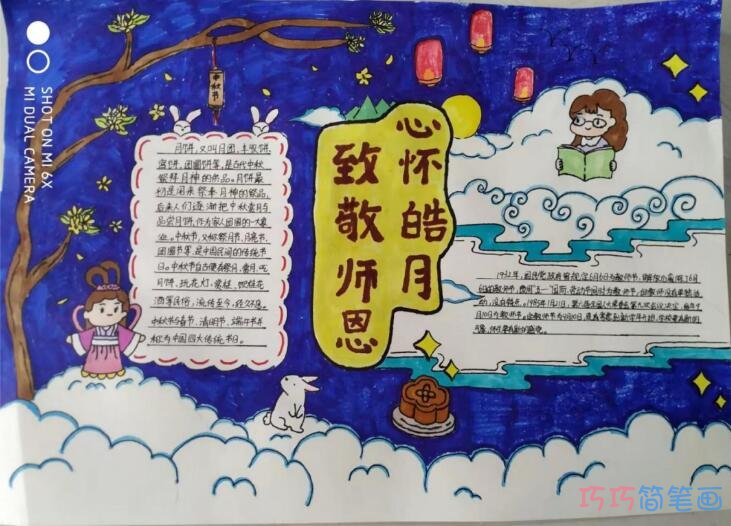 SHOT ON MI 6X
MI DUAL CAMERA
中秋节
心怀皓月
致敬师恩
月饼，又叫月团、丰收饼、
宫饼、团圆饼等，是古代中秋
祭拜月神的供品。月饼最
初是用来祭奉月神的祭品，
后来人们逐渐把中秋赏月与
品尝月饼，作为家人团圆的一大象
征。中秋节，又称祭月节、月亮节、
团圆节等，是中国民间的传统节
日。中秋节自古便有祭月、赏月、吃
月饼、玩花灯、赏桂、饮桂花
酒等民俗，流传至今，经久不息。
中秋节与春节、清明节、端午节并
称为中国四大传统节日。
1932年，国民党政府曾规定6月6日为教师节，
巧巧简笔画